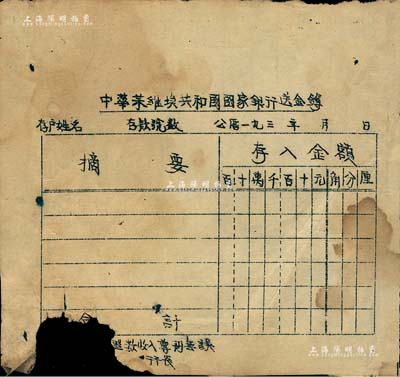 上海陽明拍賣
中華苏維埃共和國國家銀行送金簿
存户姓名 存款號數 公厝一九三 年 月 日
摘要 存入金額
百十萬千百十元角分厘
金 計
照数收入專用無誤
行長
上海陽明拍賣